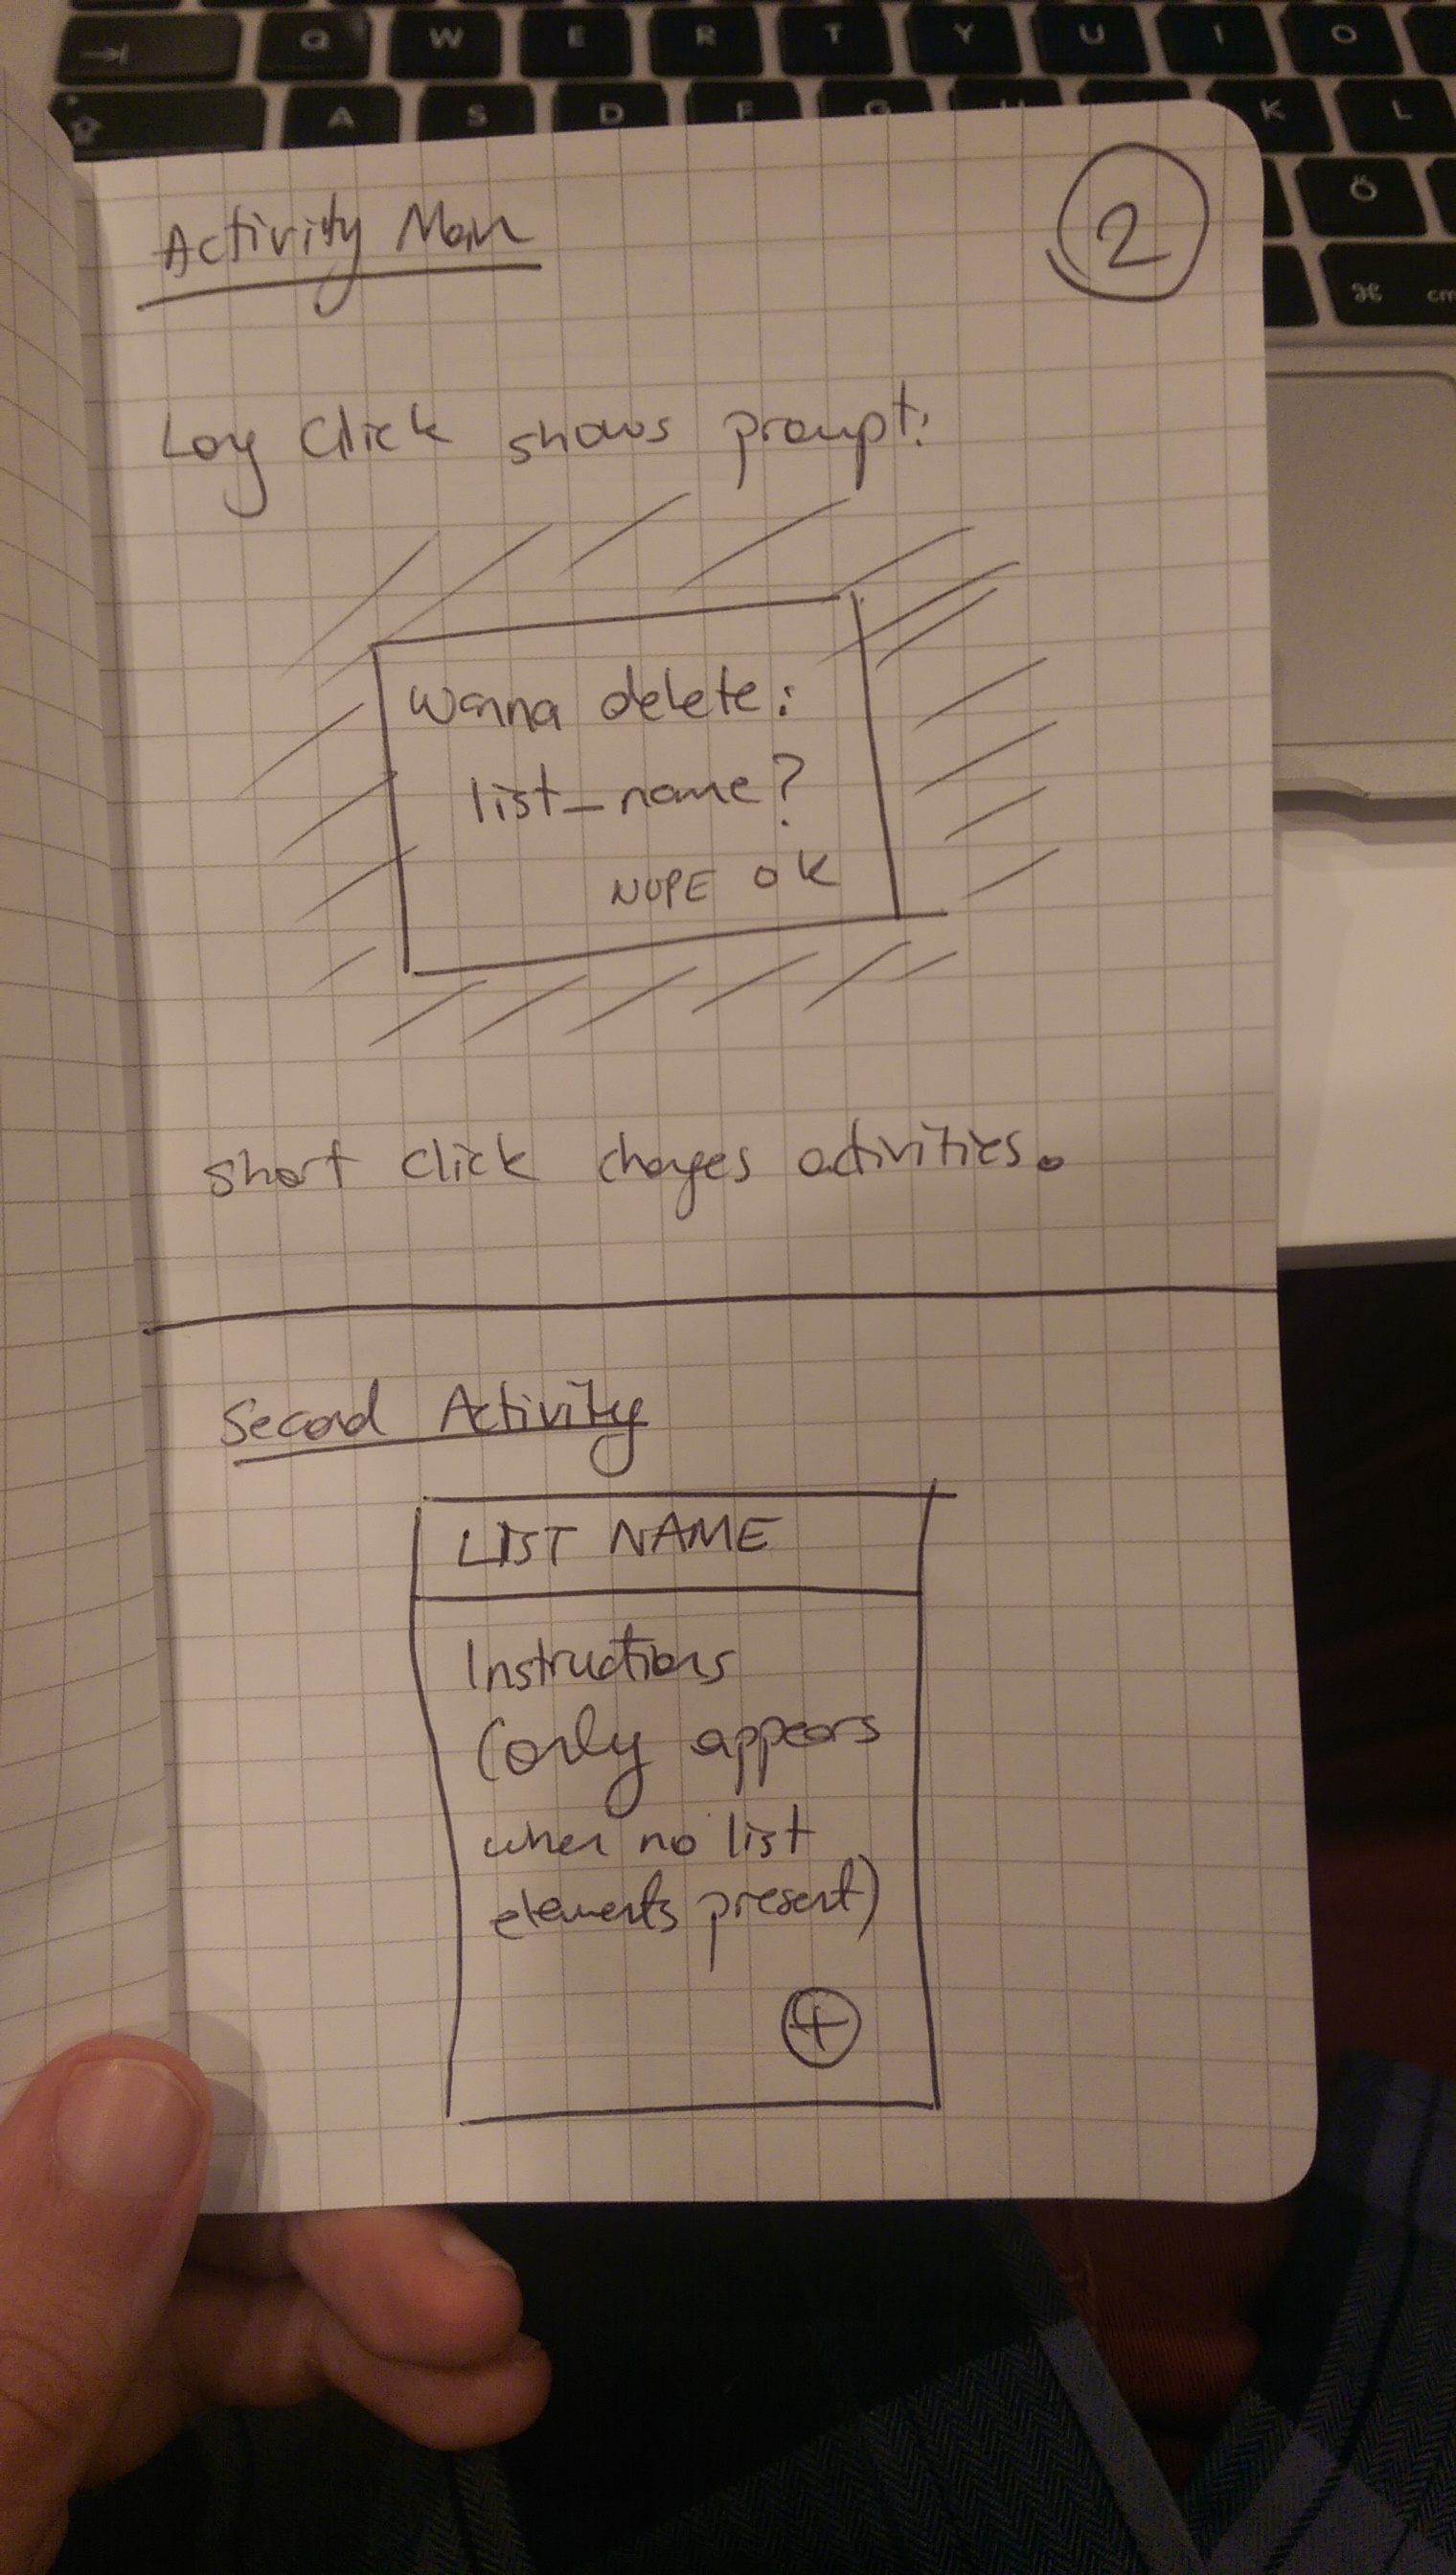 Q W E R T Y U I O
A S D F G K L
Ö
⌘ cm
Activity Main
2
Long Click shows prompt:
Wanna delete:
list_name?
NOPE OK
Short click changes activities.
Second Activity
LIST NAME
Instructions
(only appears
when no list
elements present)
+